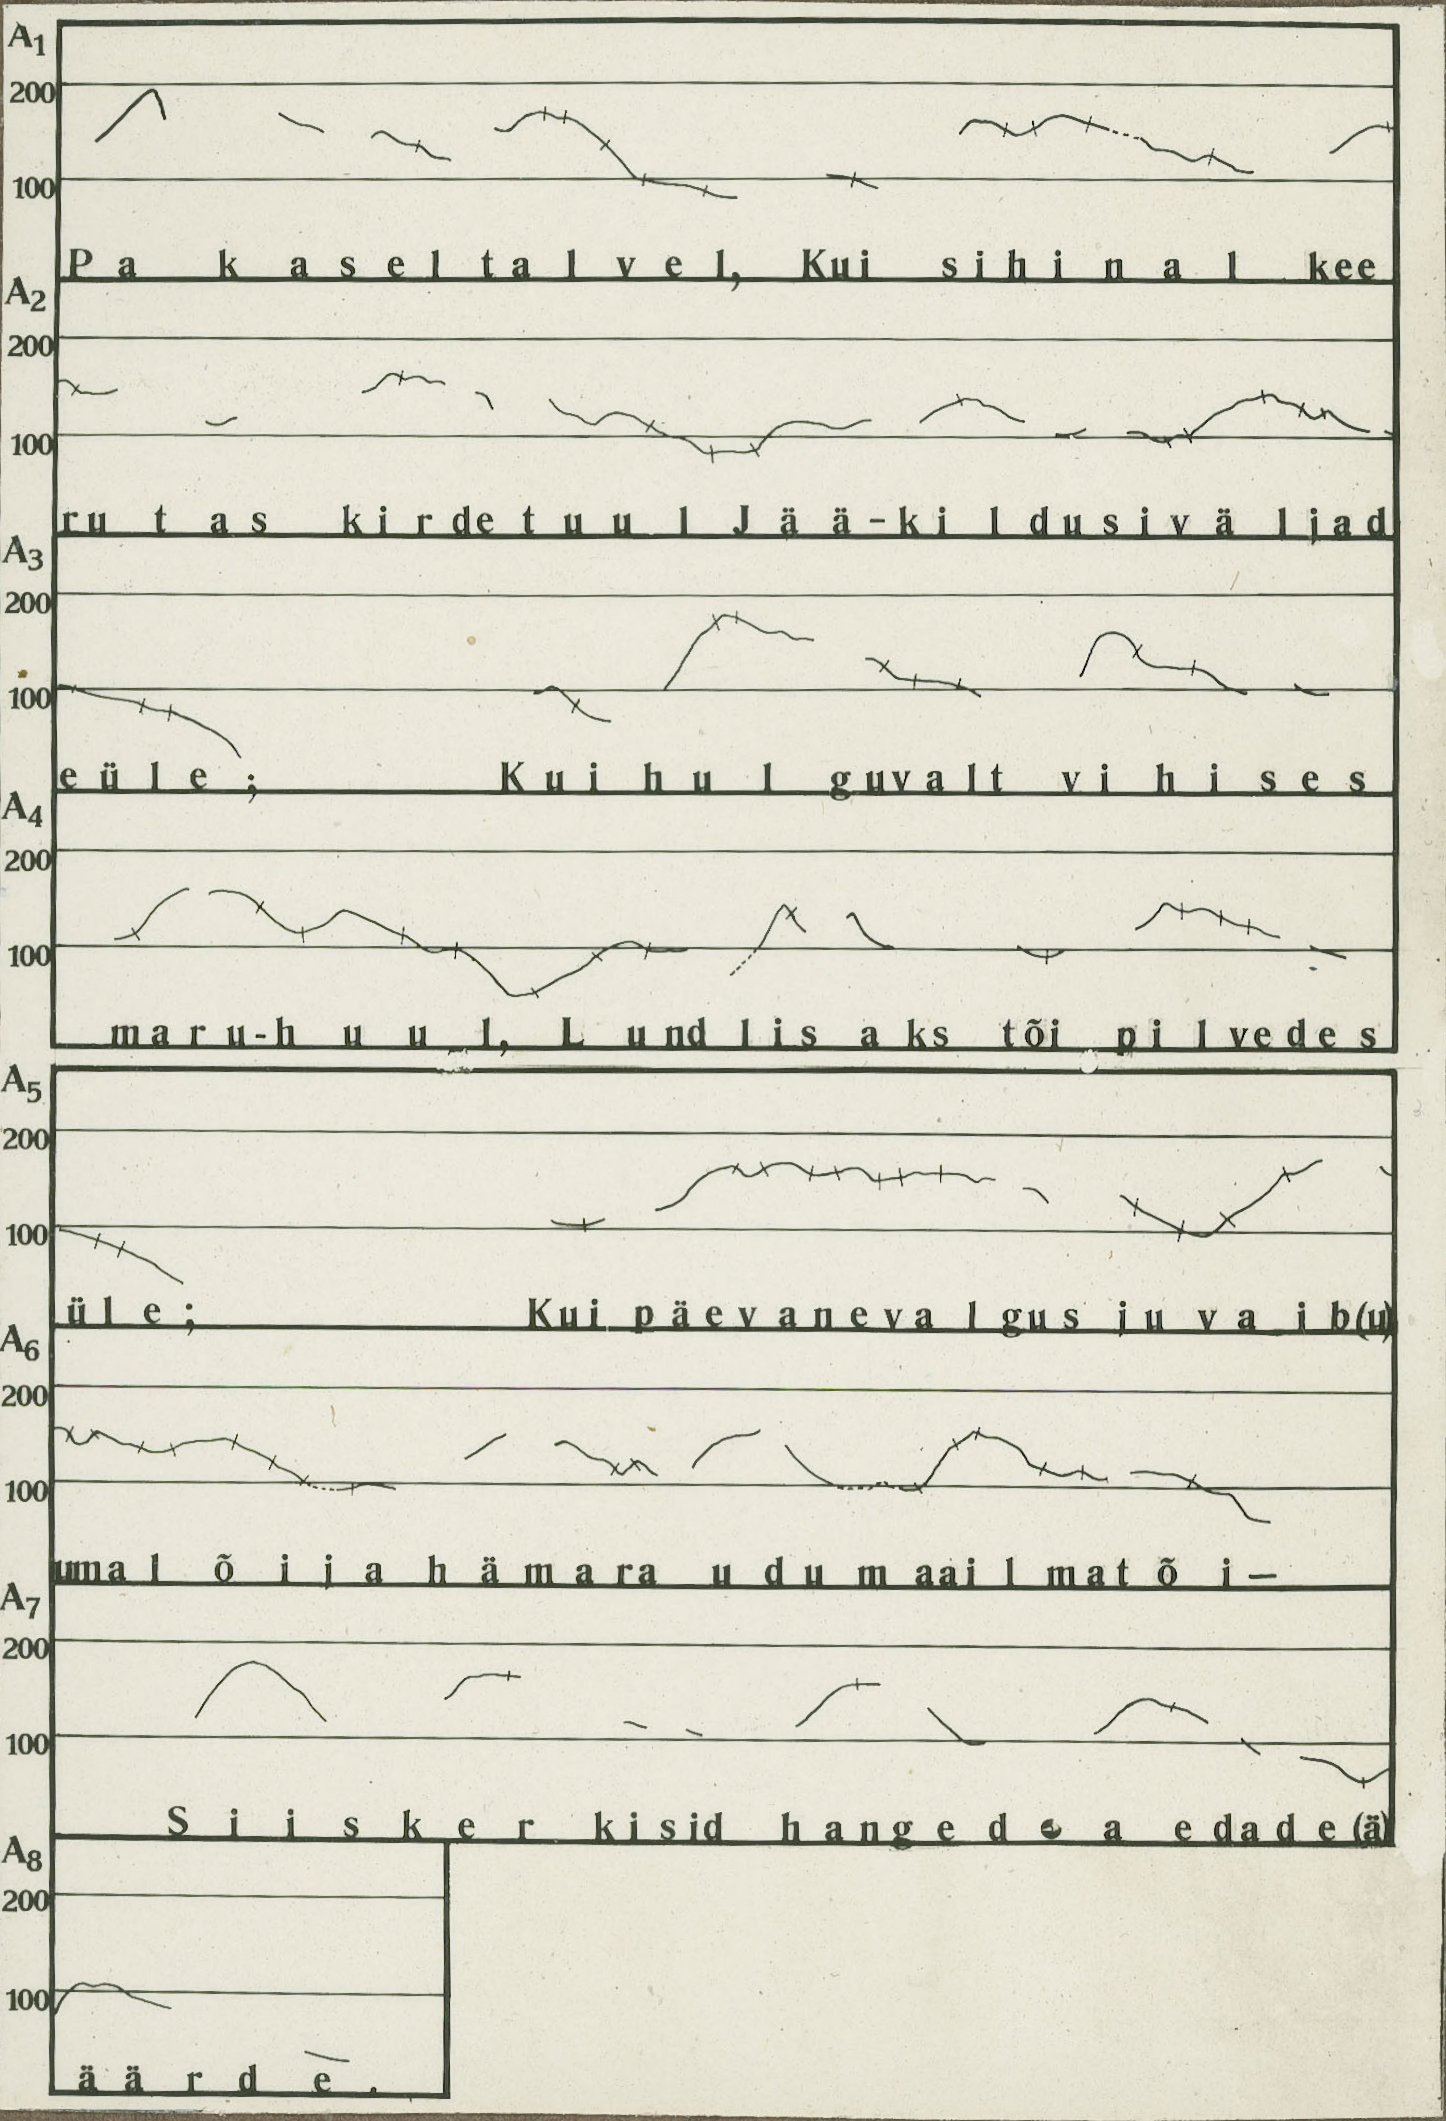 A1
200
100
Pa k a s e l t a l v e l, Kui s i h i n a l kee
A2
200
100
ru t a s k i r d e t u u l J ä ä - k i l d u s i v ä l j a d
A3
200
100
e ü l e ; K u i h u l g u v a l t v i h i s e s
A4
200
100
m a r u - h u u l, L u n d l i s a k s t õ i p i l v e d e s
A5
200
100
ü l e ; K u i p ä e v a n e v a l g u s j u v a i b (u)
A6
200
100
u m a l õ i j a h ä m a r a u d u m a a i l m a t õ i –
A7
200
100
S i i s k e r k i s i d h a n g e d e a e d a d e (ä)
A8
200
100
ä ä r d e .